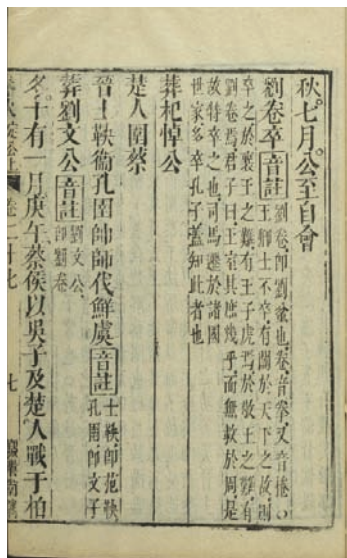 秋七月公至自會
劉卷卒音註劉卷即劉蚠也卷音拳又音捲
王卿士不卒有關於天下之故則
卒之於襄王之難有王子虎焉於敬王之難有
劉卷焉君子曰王室其庶幾乎而無救於周是
故特卒之也司馬遷於諸國
世家多卒孔子蓋知此者也
葬杞悼公
楚人圍蔡
晉士鞅衞孔圉帥師伐鮮虞音註士鞅即范鞅
孔圉即文子
葬劉文公音註劉文公
即劉卷
冬十有一月庚午蔡侯以吳子及楚人戰于柏
卷二十七
七